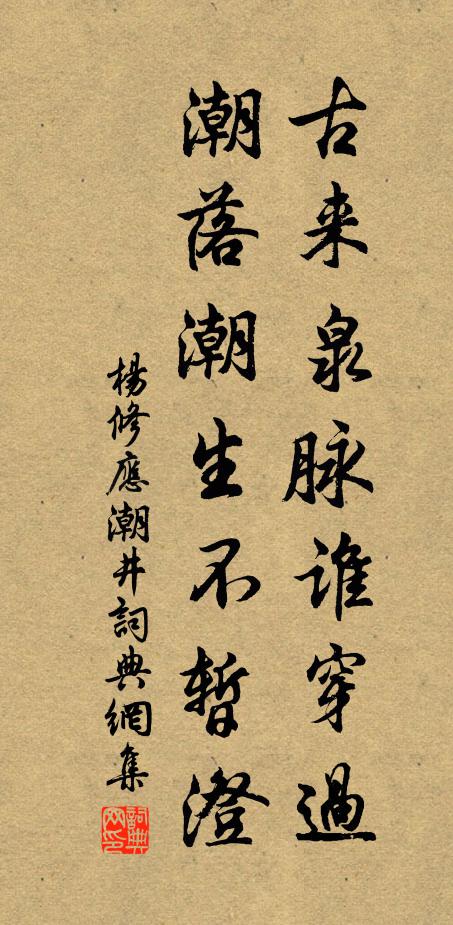 古来泉脉誰穿過
潮落潮生不暫澄
楊修應潮井詞典網集
詞典
网印